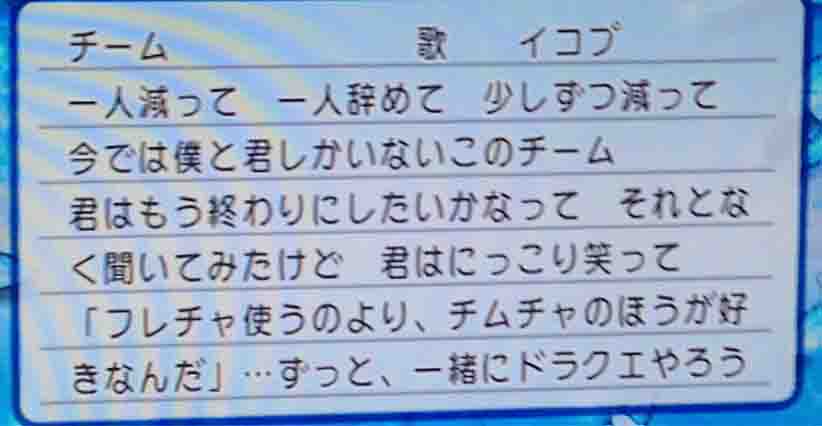 チーム　　　　　　　歌　　イコプ
一人減って　一人辞めて　少しずつ減って
今では僕と君しかいないこのチーム
君はもう終わりにしたいかなって　それとな
く聞いてみたけど　君はにっこり笑って
「フレチャ使うのより、チムチャのほうが好
きなんだ」…ずっと、一緒にドラクエやろう